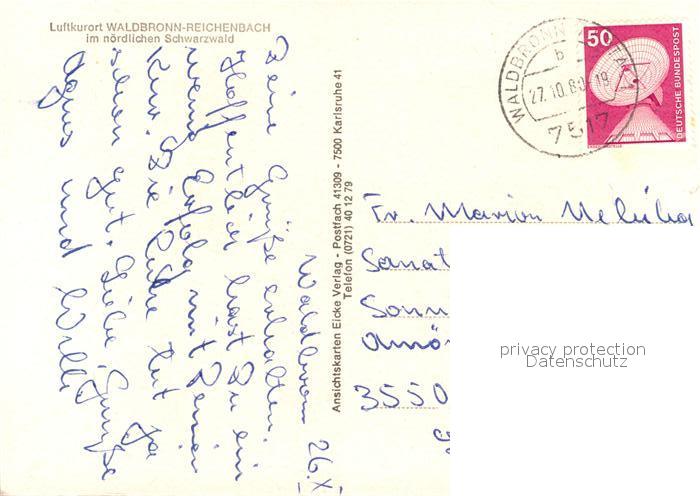 Luftkurort WALDBRONN-REICHENBACH
im nördlichen Schwarzwald
Waldbronn 26.X
Deine Grüße erhalten.
Hoffentlich hast Du ein
wenig Erfolg mit Deiner
Kur. Die Ruhe tut ja
schon gut. Liebe Grüße
und Willi
Ansichtskarten Eicke Verlag - Postfach 41309 - 7500 Karlsruhe 41
Telefon (0721) 40 12 79
WALDBRONN
b
27.10.80-19
7517
50
DEUTSCHE BUNDESPOST
Fr. Marion
Sanat
Sonn
Amö
3550
privacy protection
Datenschutz